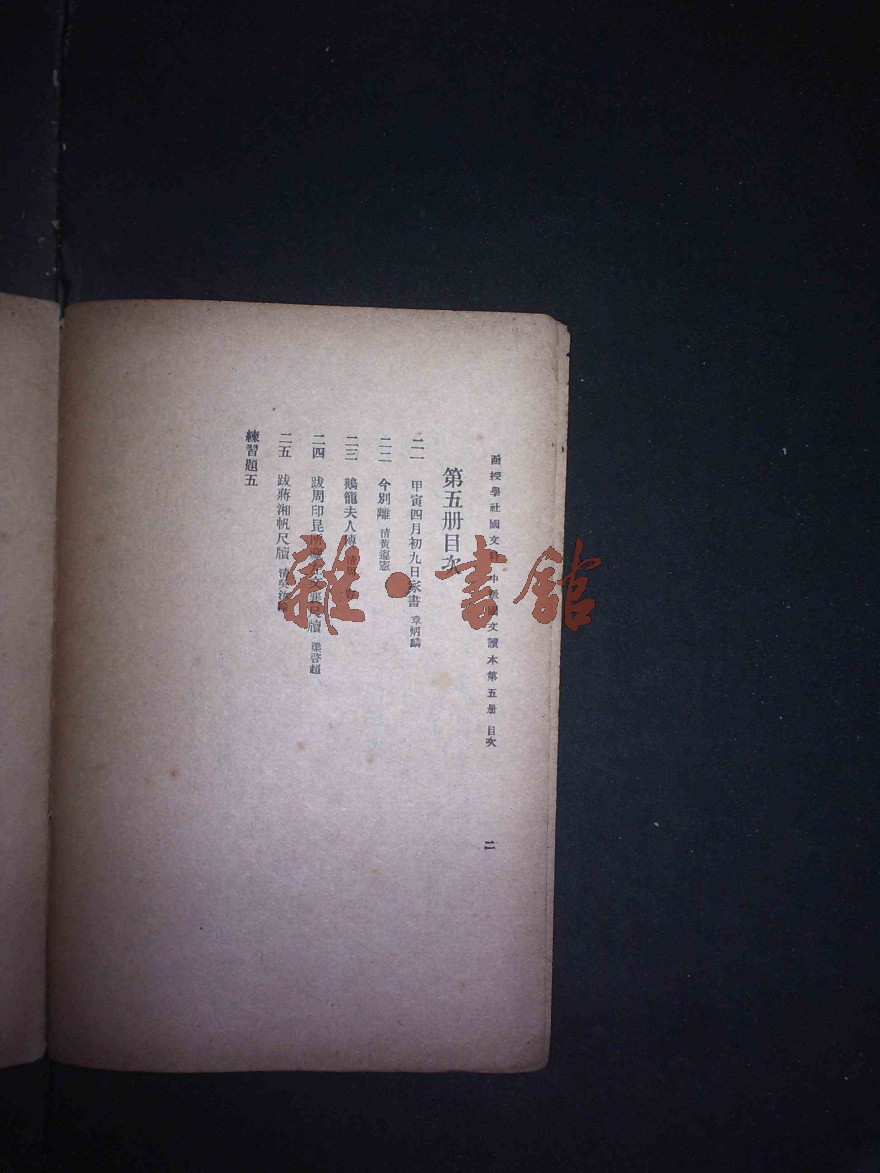 函授學社國文科中級國文讀本第五册 目次
二
第五册目次
二一 甲寅四月初九日家書 章炳麟
二二 今別離 清黃遵憲
二三 鵝籠夫人傳 清周
二四 跋周印昆所藏左文襄尺牘 梁啓超
二五 跋蔣湘帆尺牘 清吳
練習題五
雜·書館